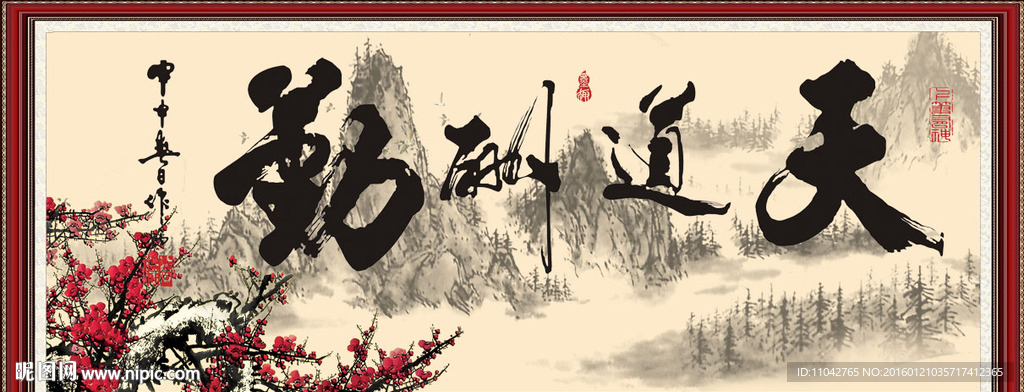 天道酬勤
甲申
昵图网 www.nipic.com
ID:11042765 NO:20160121035717412365